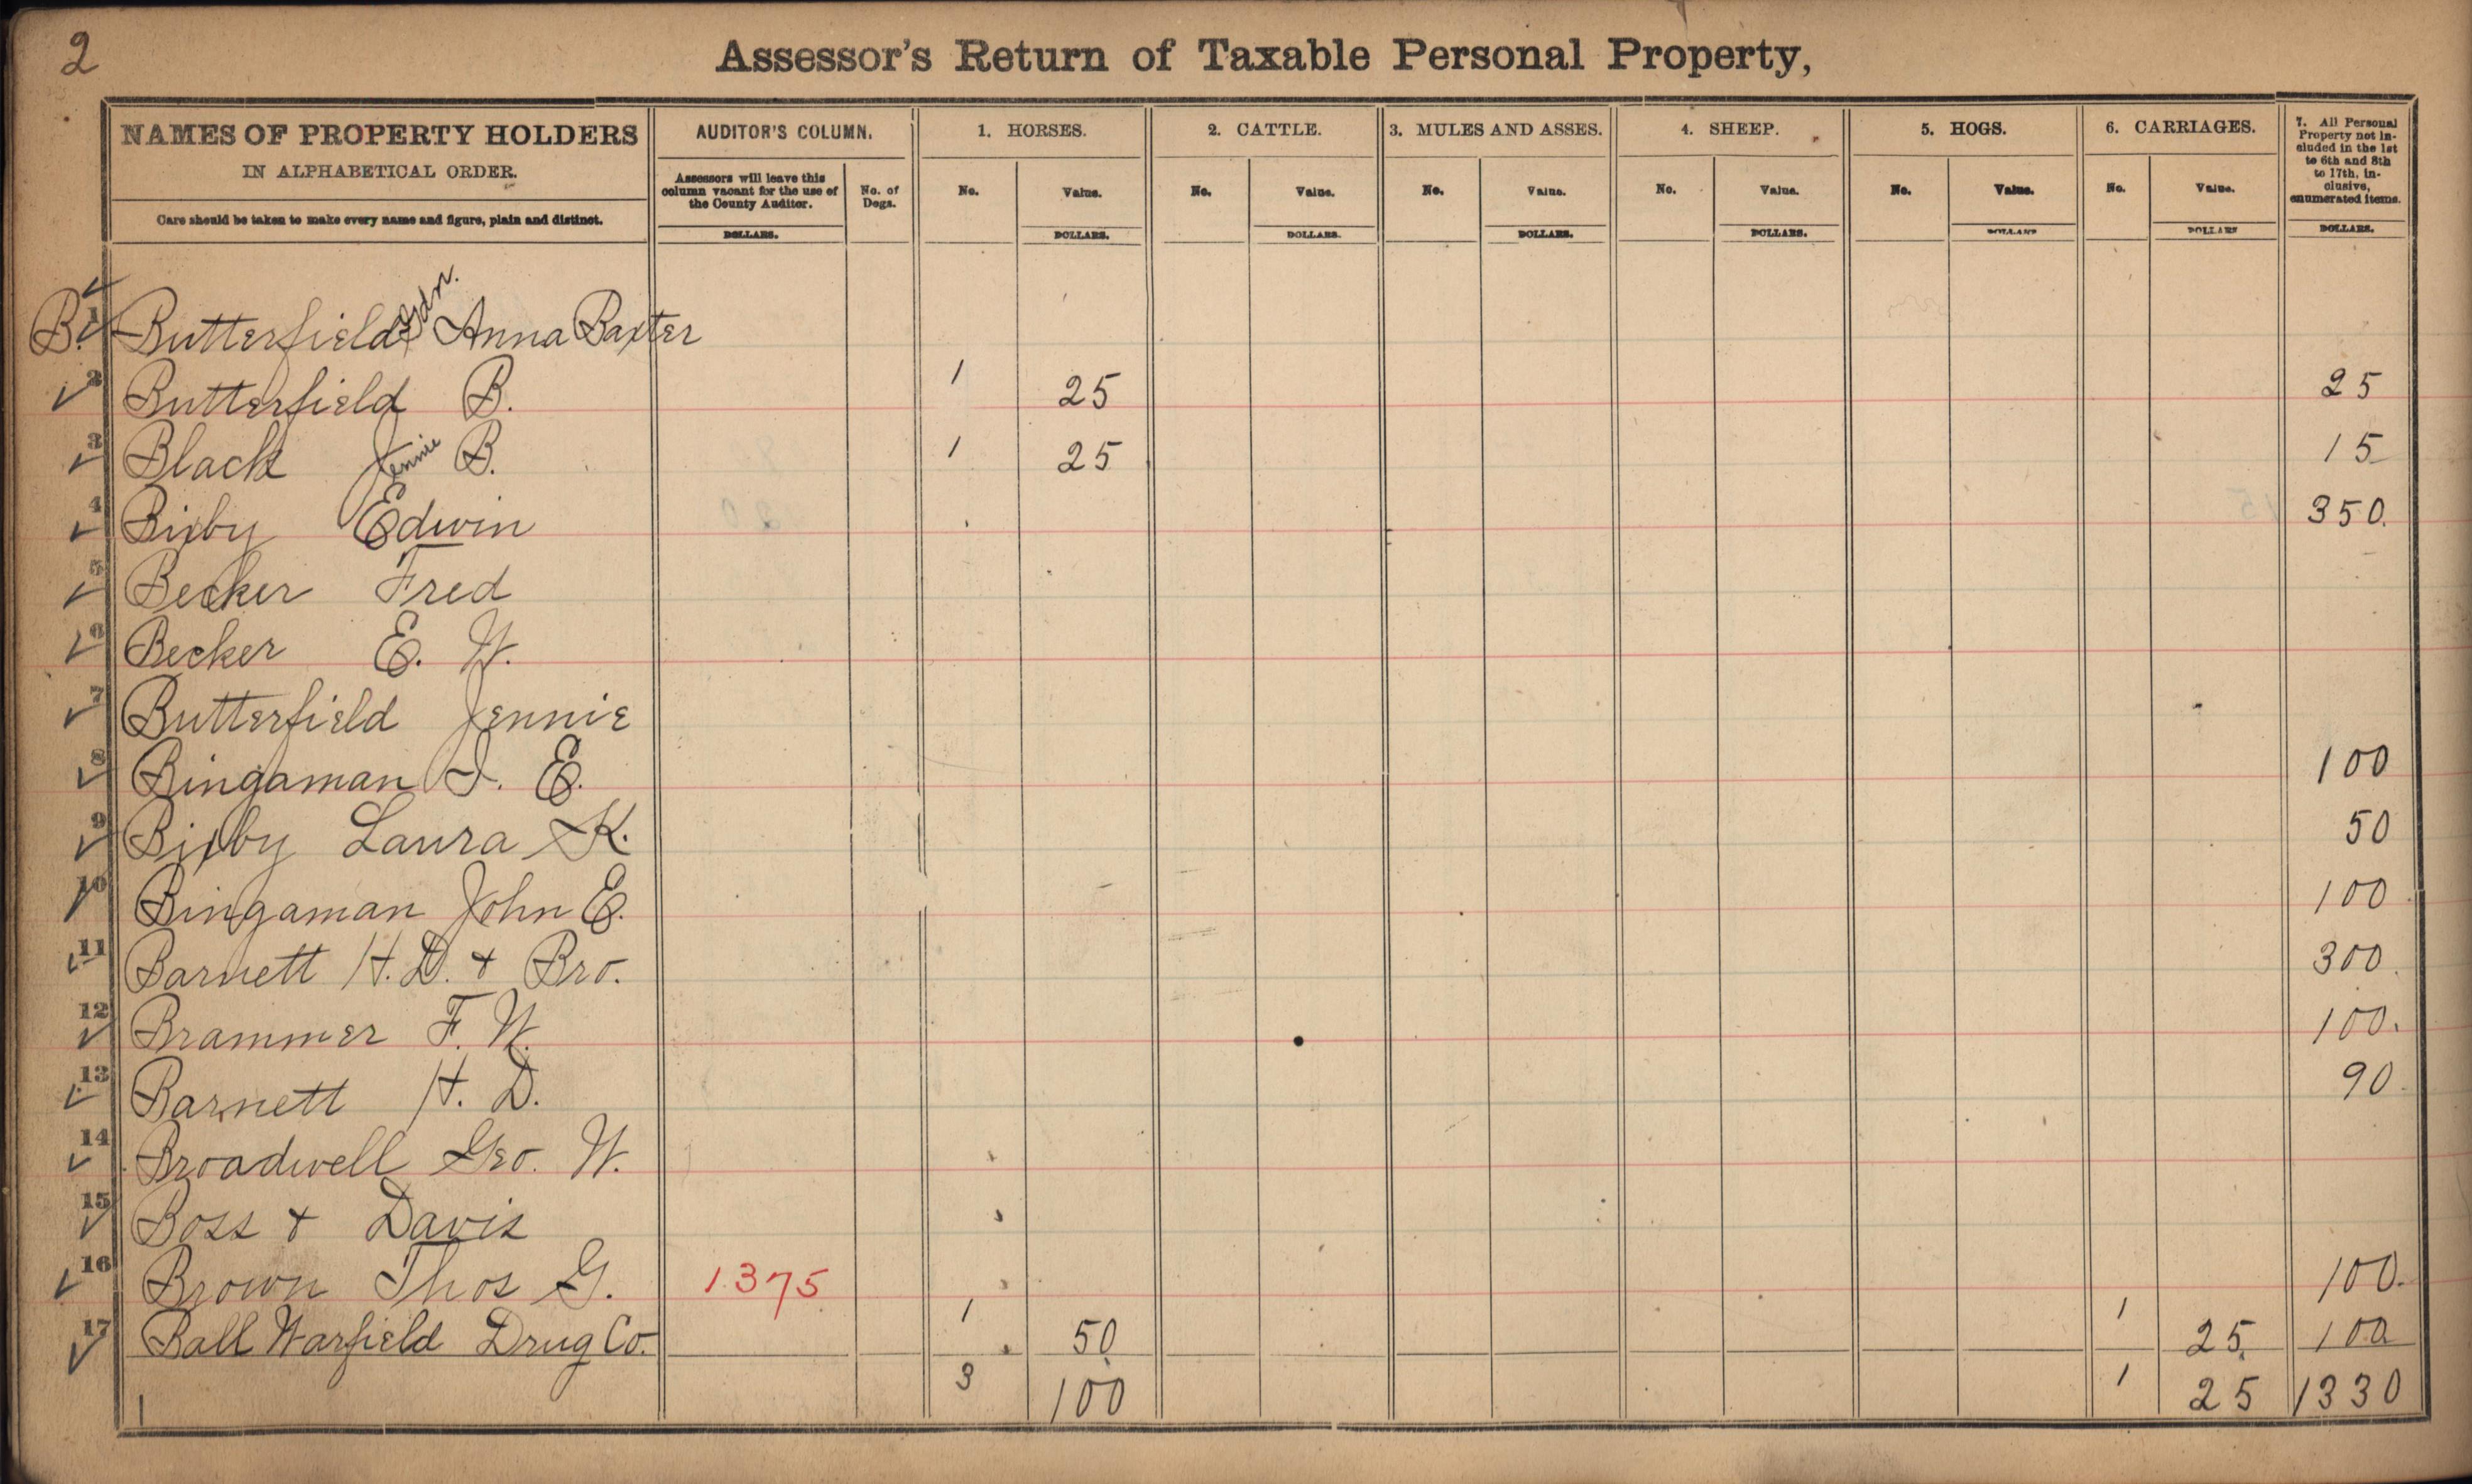 2
Assessor's Return of Taxable Personal Property,
NAMES OF PROPERTY HOLDERS
IN ALPHABETICAL ORDER.
Care should be taken to make every name and figure, plain and distinct.
AUDITOR'S COLUMN.
Assessors will leave this
column vacant for the use of
the County Auditor.
DOLLARS.
No. of
Dogs.
1. HORSES.
No. Value.
DOLLARS.
2. CATTLE.
No. Value.
DOLLARS.
3. MULES AND ASSES.
No. Value.
DOLLARS.
4. SHEEP.
No. Value.
DOLLARS.
5. HOGS.
No. Value.
DOLLARS
6. CARRIAGES.
No. Value.
DOLLARS
7. All Personal
Property not in-
cluded in the 1st
to 6th and 8th
to 17th, in-
clusive,
enumerated items.
DOLLARS.
B. 1 Butterfield Gdn. Anna Baxter
2 Butterfield B. 1 25 25
3 Black Jennie B. 1 25 15
4 Bixby Edwin 350.
5 Becker Fred
6 Becker E. W.
7 Butterfield Jennie
8 Bingaman I. E. 100
9 Bixby Laura K. 50
10 Bingaman John E. 100
11 Barnett H. D. & Bro. 300
12 Brammer F. W. 100.
13 Barnett H. D. 90
14 Broadwell Geo. W.
15 Boss & Davis
16 Brown Thos G. 1375 100.
17 Ball Warfield Drug Co. 1 50 1 25 100
3 100 1 25 1330